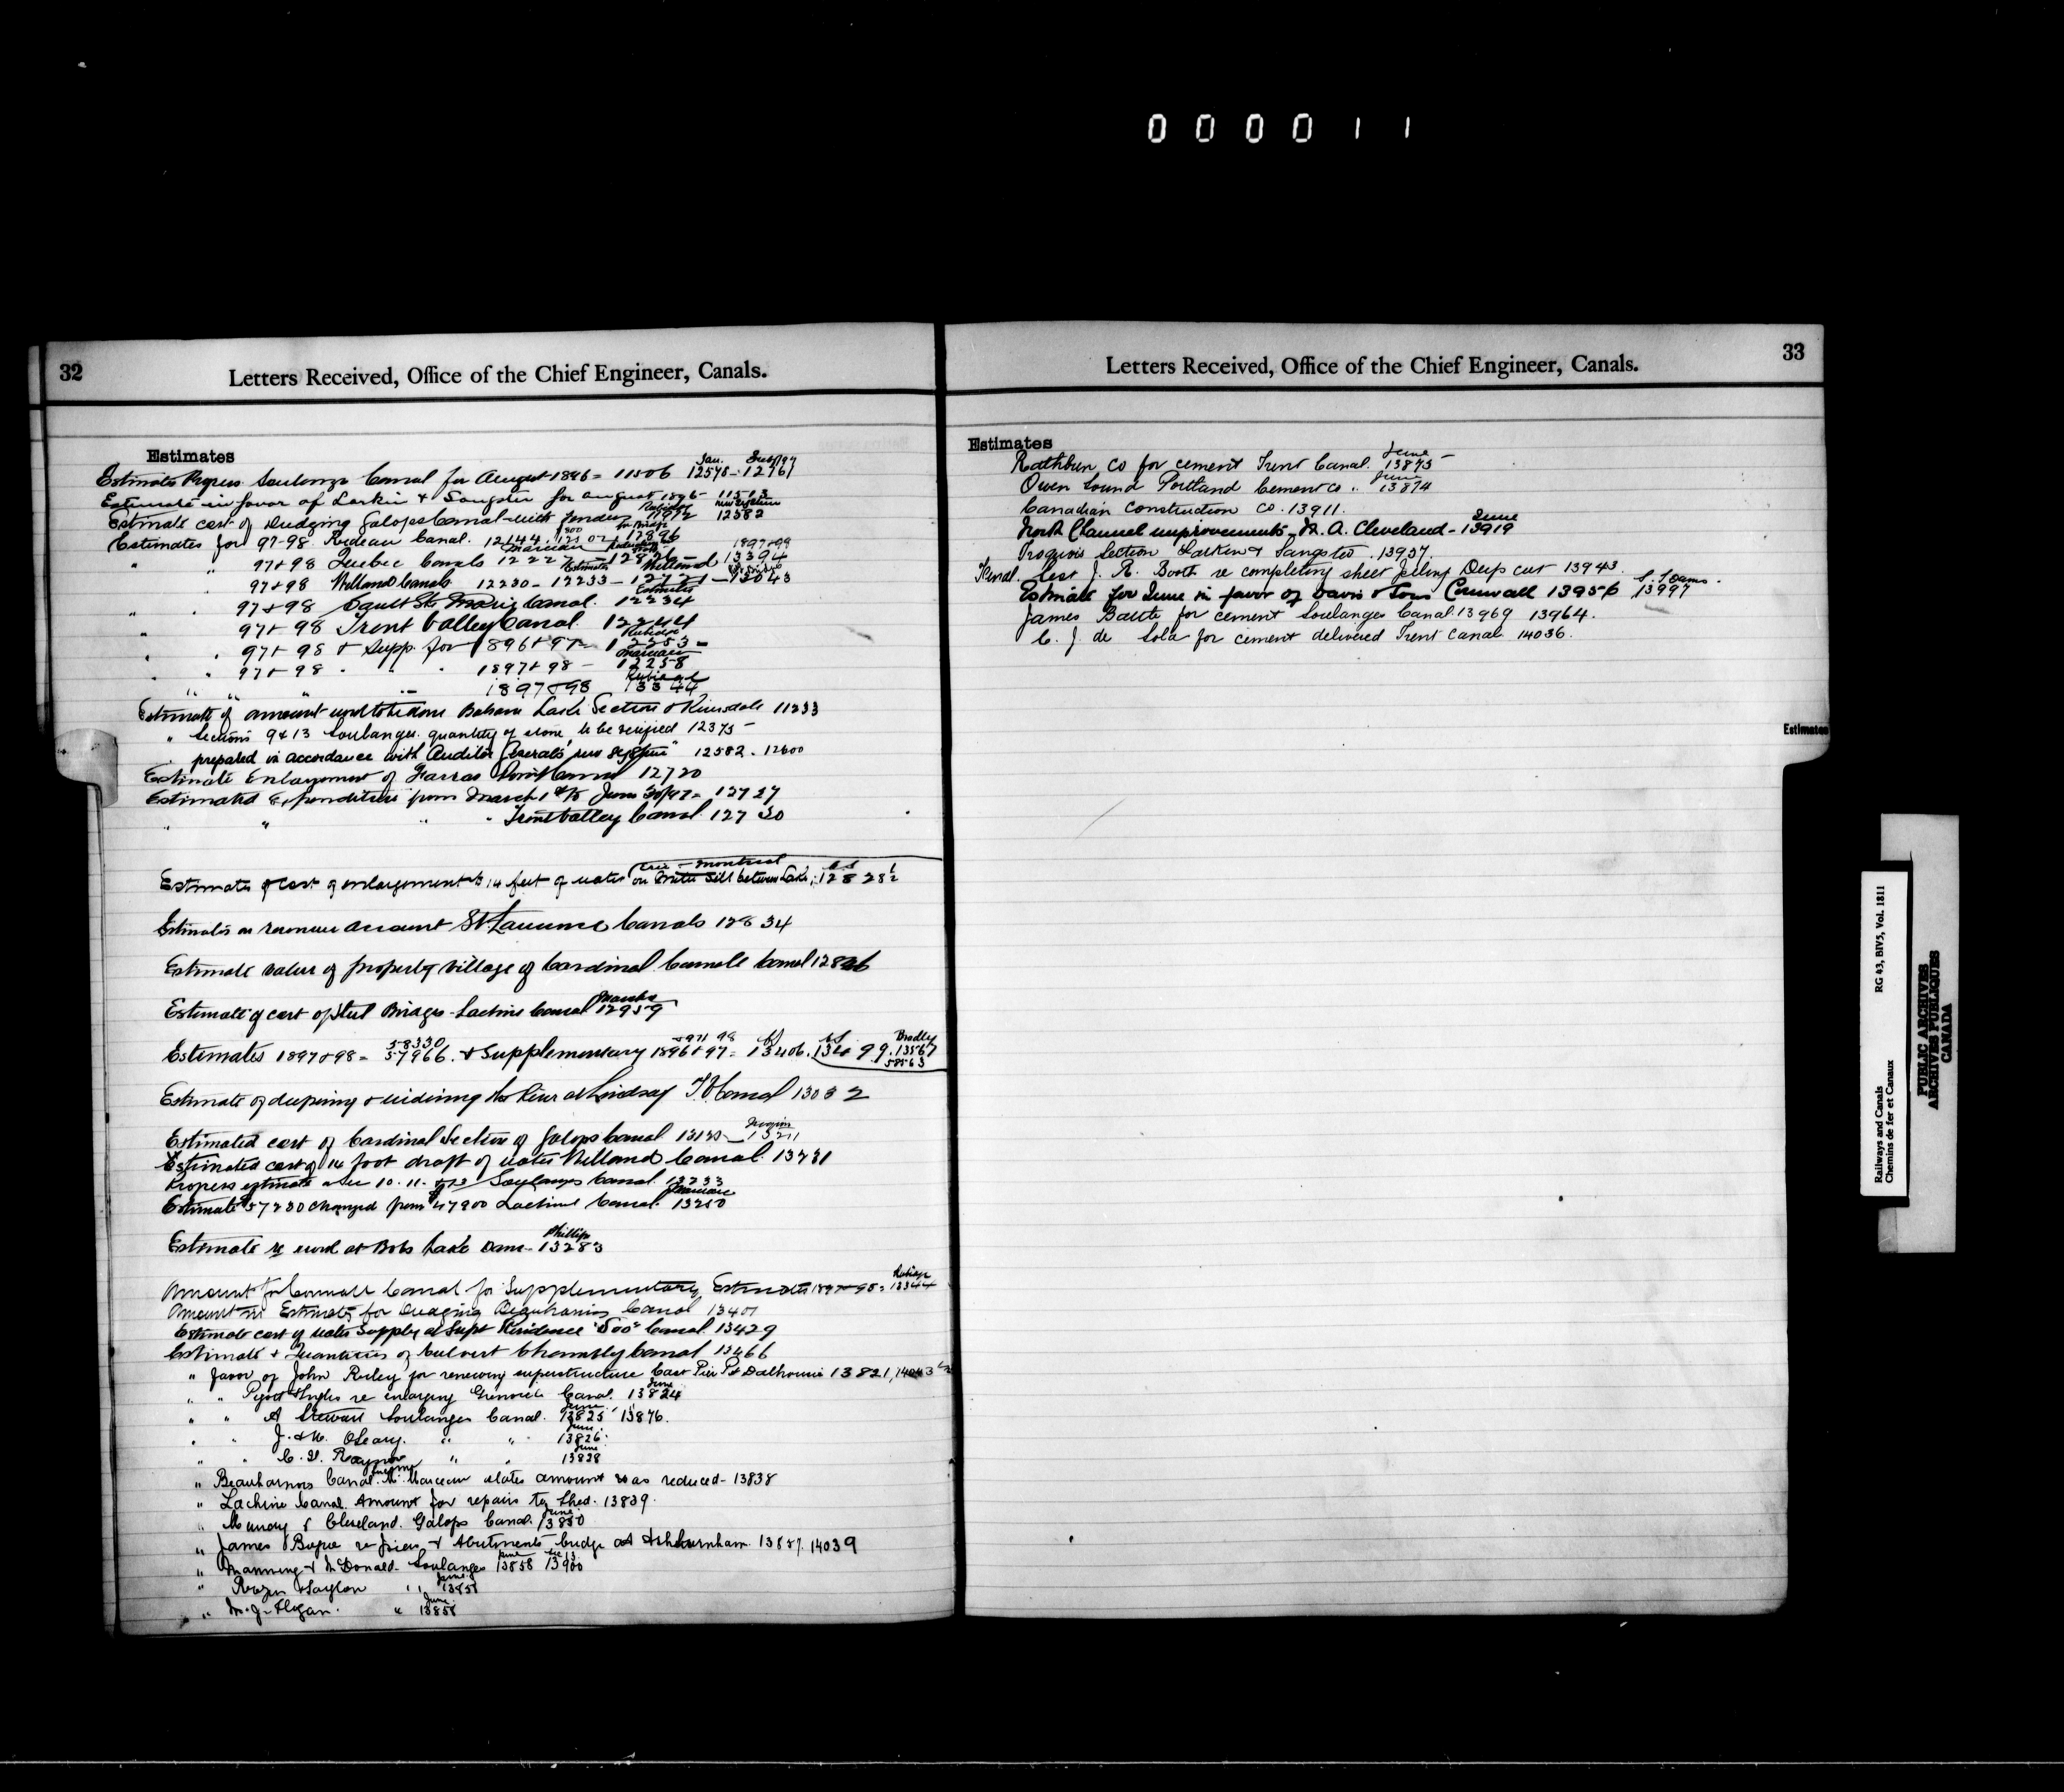 000011
32
Letters Received, Office of the Chief Engineer, Canals.
Estimates
Jan.
Estimates Progress Soulanges Canal for August 1896 = 11506 12578 - 12761
Estimate in favor of Larkin & Sangster for august 1896 - 11513
Estimate cost of Dredging Galops Canal - with tenders 11972 12582
Estimates for 97-98. Rideau Canal. 12144. 12896
1897+98
" " 97+98 Quebec Canals 12227 - 12826 - 13394
97+98 Welland Canals 12230 - 12233 - 12721 - 13043
" " 97+98 Sault Ste Marie Canal. 12234
" 97+98 Trent Valley Canal. 12244
" " 97+98 + Supp. for 1896+97 - 12253 -
Marceau
" " 97+98 " " 1897+98 - 12258
" " " " 1897+98 13344
Estimate of amount work to be done Balsam Lake Section & Kirkfield 11233
" Sections 9 & 13 Soulanges. quantity of stone, to be verified 12375 -
" prepared in accordance with Auditor General's new system" 12582 - 12600
Estimate Enlargement of Farrans Point Canal 12720
Estimated Expenditure from March 1st to June 30/97 = 12727
" " " " Trent Valley Canal. 12730
Erie - Montreal
Estimates of cost of enlargement to 14 feet of water on Mitre Sill between Lake, 12828½
Estimates on revenue account St. Lawrence Canals 12834
Estimate value of property village of Cardinal. Cornwall Canal
Estimate of cost of steel Bridges - Lachine Canal 12959
58330 Bradley
Estimates 1897+98 = 57966. + Supplementary 1896+97 = 13406. 13499. 13567
58563
Estimate of deepening & widening the River at Lindsay T.V. Canal 13032
Estimated cost of Cardinal Section of Galops Canal 13211
Estimated cost of 14 foot draft of water Welland Canal. 13231
Progress estimate Sec 10. 11. & 12 Soulanges Canal. 13233
Marceau
Estimate $57200 changed from $47900 Lachine Canal. 13250
Phillips
Estimate re work at Bobs Lake Dam - 13283
Amount for Cornwall Canal for Supplementary Estimates 1897-98 = 13344
Amount in Estimates for Dredging Beauharnois Canal 13401
Estimate cost of water Supply at Supt Residence "Soo" Canal. 13429
Estimate & Quantities of Culvert Chambly Canal 13466
" favor of John Riley for renewing superstructure East Pier Pt Dalhousie 13821, 14043
June
" " Pigott & Ingles re enlarging Grenville Canal. 13824
June
" " A Stewart Soulanges Canal. 13825 13876.
June
" " J. & M. O'Leary. " " 13826
June
" " " " 13828
" Beauharnois Canal. Mr. Marceau states amount was reduced - 13838
" Lachine Canal. Amount for repairs to Shed. 13839.
June
" Murray & Cleveland. Galops Canal. 13850
" James Bogue re piers & Abutments bridge at Ashburnham. 13857. 14039
June
" Manning & McDonald. Soulanges 13858 13900
June
" " 13858
June
" " 13858
33
Letters Received, Office of the Chief Engineer, Canals.
Estimates
June
Rathbun Co for cement Trent Canal. 13875 -
June
Owen Sound Portland Cement Co " 13874
Canadian Construction Co. 13911.
June
North Channel improvements - M. A. Cleveland - 13919
Iroquois Section Larkin & Sangster. 13937.
J. R. Booth re completing sheet piling Deep cut 13943.
Estimate for June in favor of Davis & Sons Cornwall 13956 13997
James Battle for cement Soulanges Canal. 13969 13964.
C. J. de Sola for cement delivered Trent Canal 14036.
Estimates
Railways and Canals
Chemins de fer et Canaux
RG 43, BIV5, Vol. 1811
PUBLIC ARCHIVES
ARCHIVES PUBLIQUES
CANADA